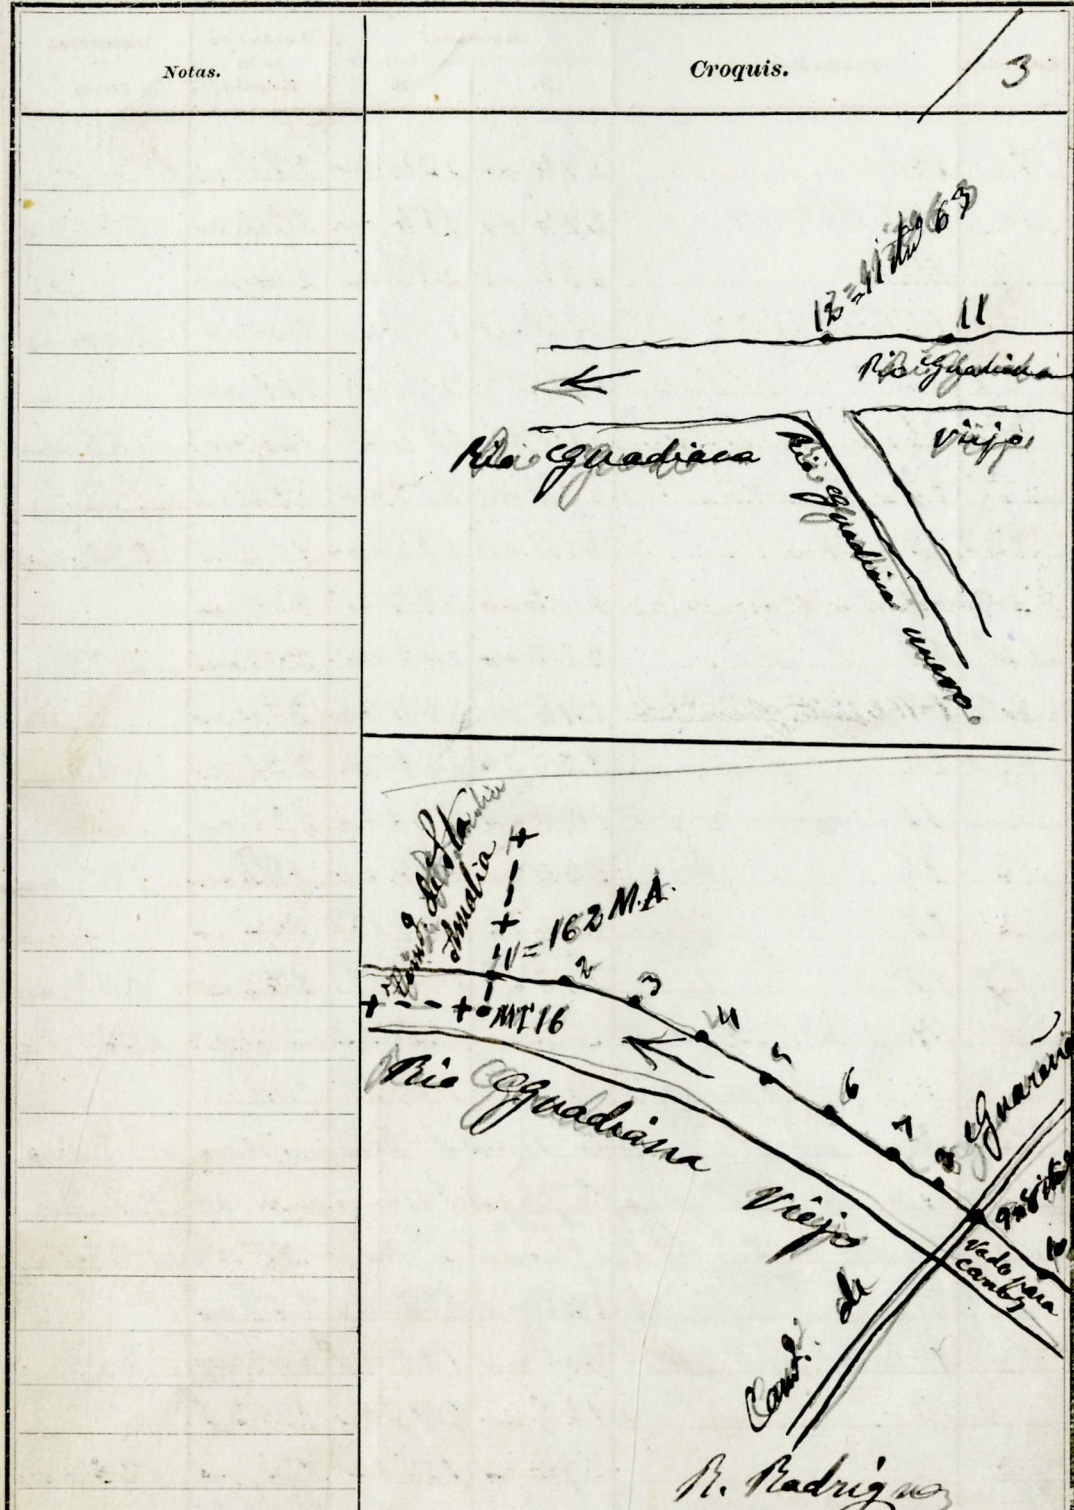 Notas.
Croquis.
3
12=
63
11
Rio Guadiana
Viejo
Rio Guadiana
Rio Guadiana nuevo
de Sta
Amalia
V=162 M.A.
2
3
MT16
4
5
6
7
8
Rio Guadiana Viejo
Guareña
10
Vado para
Camº de
R. Rodriguez